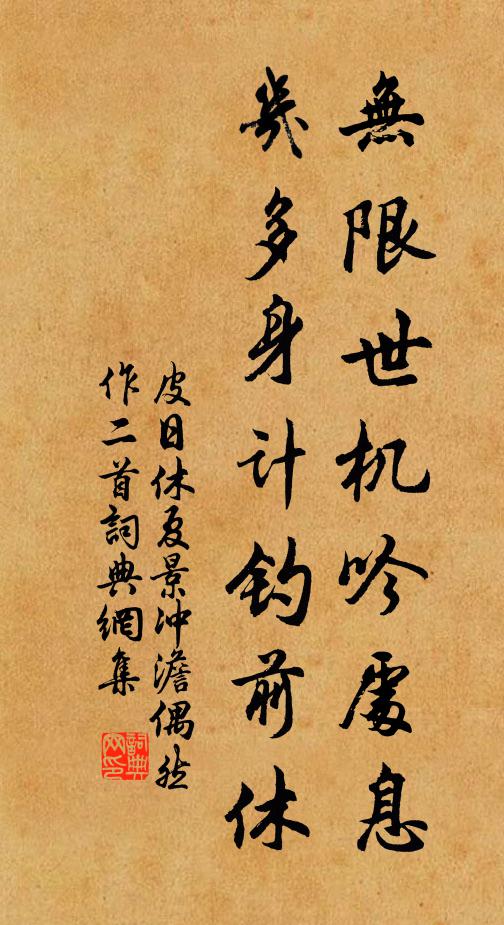 無限世机吟處息
幾多身计钓前休
皮日休夏景沖澹偶然
作二首詞典網集
詞典
网印